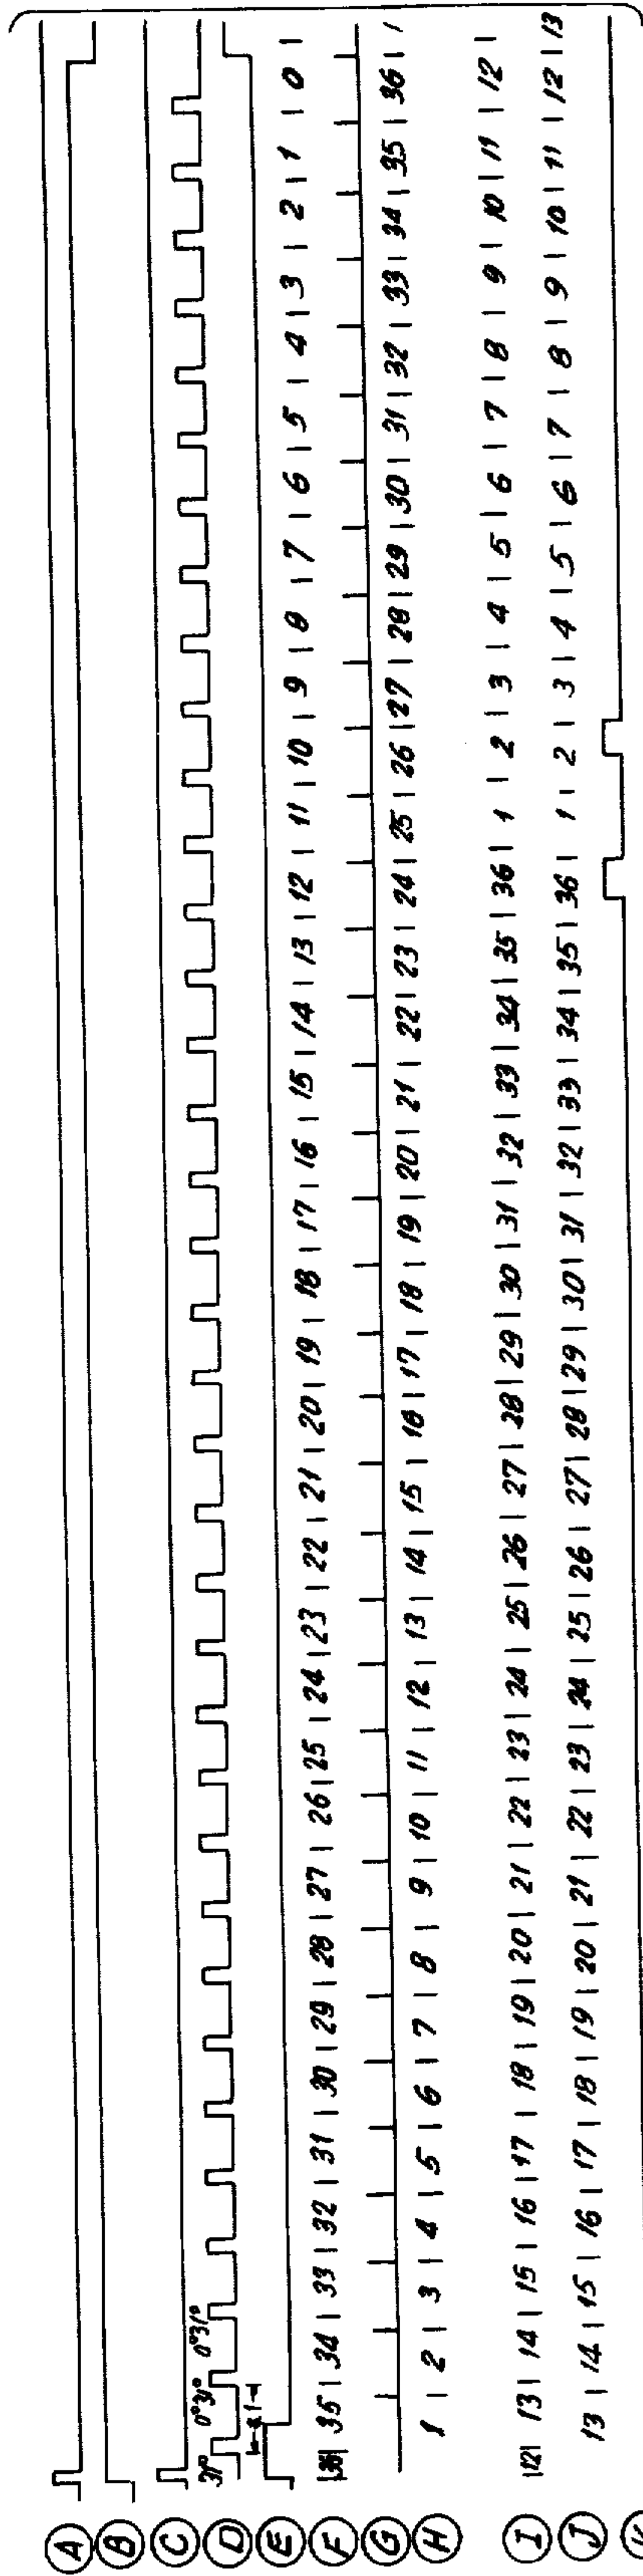 A
B
C
D 31° 0°31° 0°31°
E
F |36| 35 | 34 | 33 | 32 | 31 | 30 | 29 | 28 | 27 | 26 | 25 | 24 | 23 | 22 | 21 | 20 | 19 | 18 | 17 | 16 | 15 | 14 | 13 | 12 | 11 | 10 | 9 | 8 | 7 | 6 | 5 | 4 | 3 | 2 | 1 | 0 |
G
H 1 | 2 | 3 | 4 | 5 | 6 | 7 | 8 | 9 | 10 | 11 | 12 | 13 | 14 | 15 | 16 | 17 | 18 | 19 | 20 | 21 | 22 | 23 | 24 | 25 | 26 | 27 | 28 | 29 | 30 | 31 | 32 | 33 | 34 | 35 | 36 | 1
I |12| 13 | 14 | 15 | 16 | 17 | 18 | 19 | 20 | 21 | 22 | 23 | 24 | 25 | 26 | 27 | 28 | 29 | 30 | 31 | 32 | 33 | 34 | 35 | 36 | 1 | 2 | 3 | 4 | 5 | 6 | 7 | 8 | 9 | 10 | 11 | 12 |
J 13 | 14 | 15 | 16 | 17 | 18 | 19 | 20 | 21 | 22 | 23 | 24 | 25 | 26 | 27 | 28 | 29 | 30 | 31 | 32 | 33 | 34 | 35 | 36 | 1 | 2 | 3 | 4 | 5 | 6 | 7 | 8 | 9 | 10 | 11 | 12 | 13